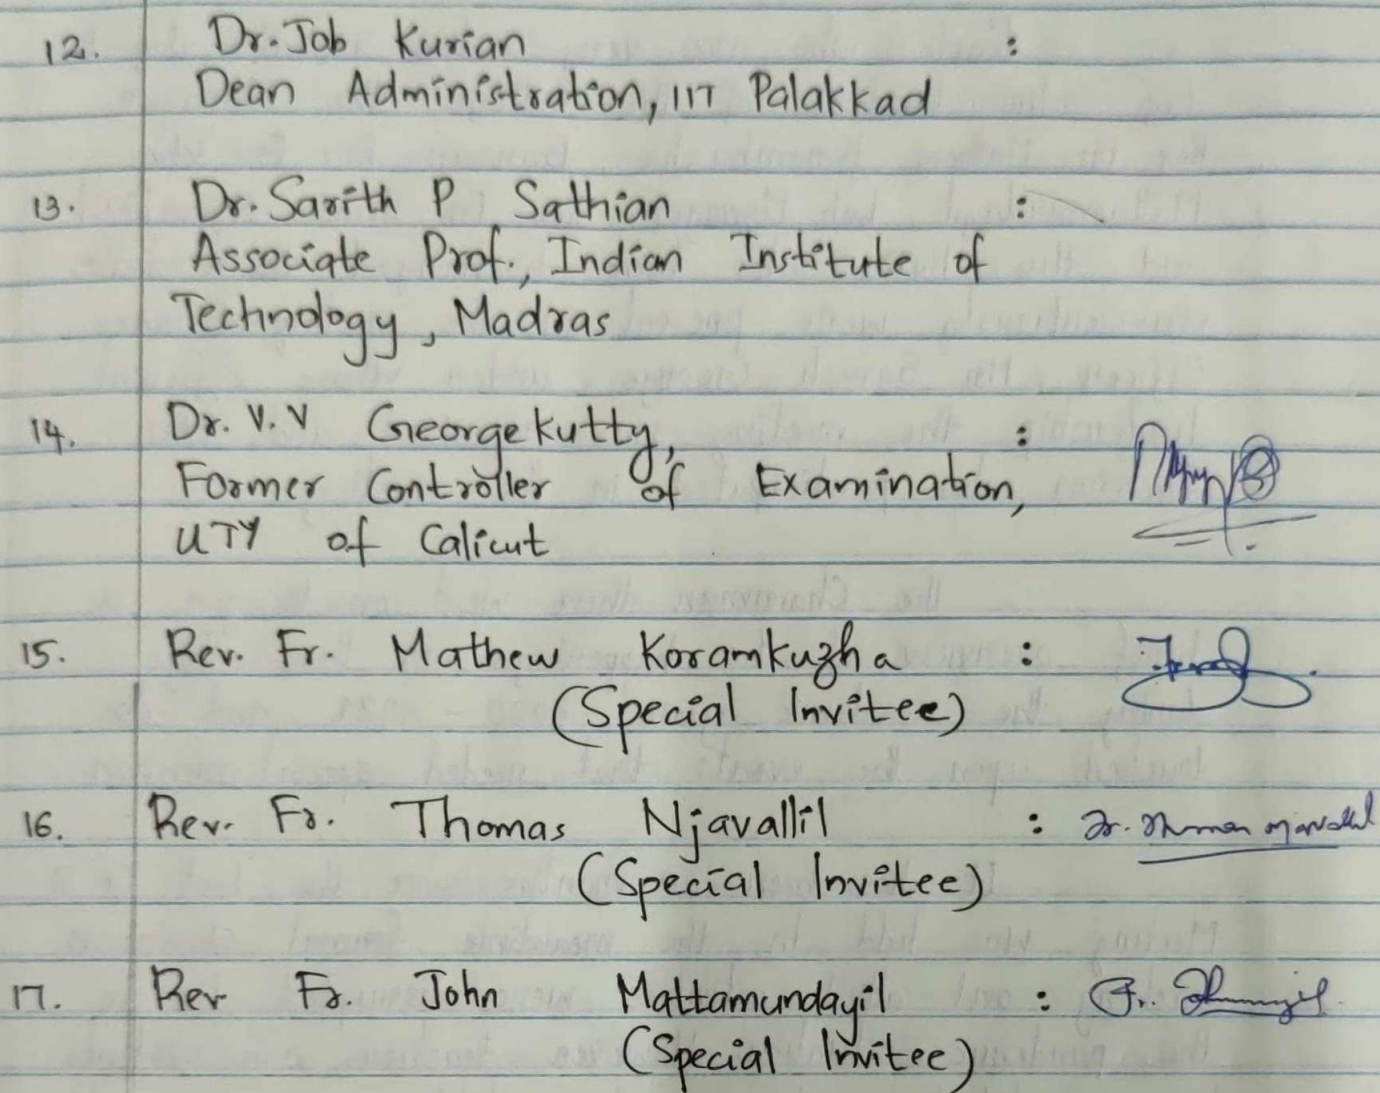 12. Dr. Job Kurian :
Dean Administration, IIT Palakkad
13. Dr. Sarith P Sathian :
Associate Prof., Indian Institute of
Technology, Madras
14. Dr. V. V Georgekutty, :
Former Controller of Examination,
UTY of Calicut
15. Rev. Fr. Mathew Koramkuzha :
(Special Invitee)
16. Rev. Fr. Thomas Njavallil : Fr. Thomas Njavallil
(Special Invitee)
17. Rev Fr. John Mattamundayil : Fr.
(Special Invitee)